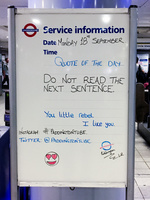 Service information
Date MONDAY 18TH SEPTEMBER
Time
QUOTE OF THE DAY
DO NOT READ THE
NEXT SENTENCE.
You little rebel
I like you
INSTAGRAM @PADDINGTONTUBE
TWITTER @PADDINGTONTUBE